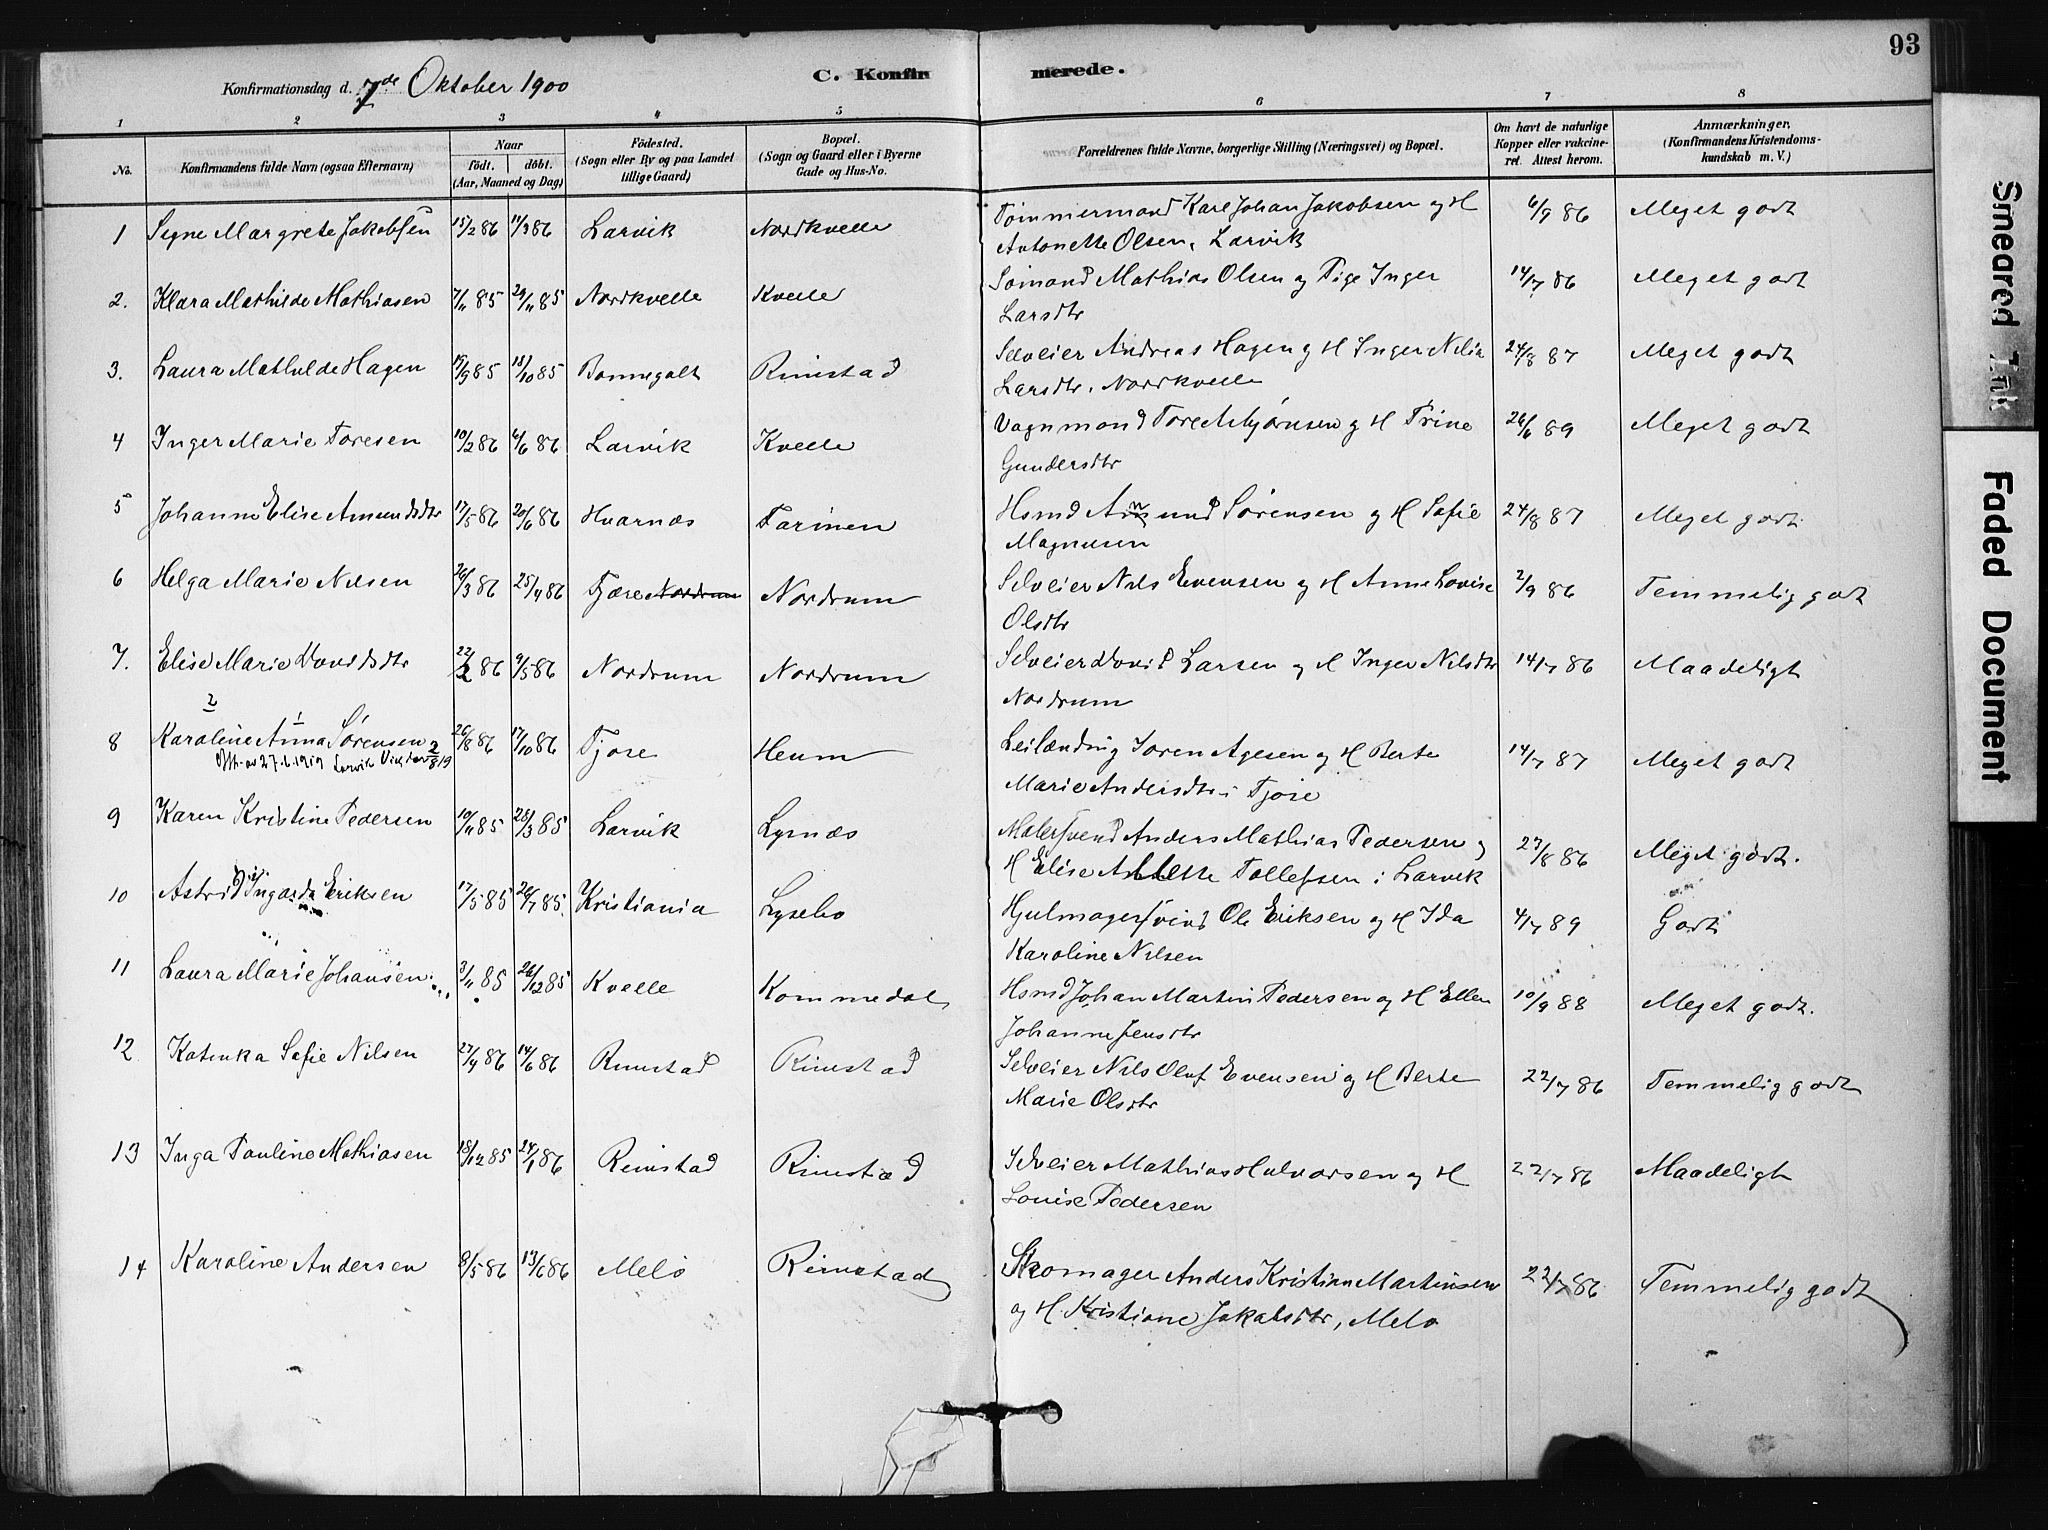 93
Konfirmationsdag d. 7de Oktober 1900
C. Konfirmerede.
1 2 3 4 5 6 7 8
No.
Konfirmandens fulde Navn (ogsaa Efternavn)
Naar
födt. döbt.
(Aar, Maaned og Dag)
Födested.
(Sogn eller By og paa Landet
tillige Gaard)
Bopæl.
(Sogn og Gaard eller i Byerne
Gade og Hus-No.
Forældrenes fulde Navne, borgerlige Stilling (Næringsvei) og Bopæl.
Om havt de naturlige
Kopper eller vakcine-
ret. Attest herom.
Anmærkninger.
(Konfirmandens Kristendoms-
kundskab m. V.)
1 Signe Margrete Jakobsen 15/2 86 11/3 86 Larvik Nordkvelle Tømmermand Karl Johan Jakobsen og H 6/9 86 Meget godt
Antonette Olsen, Larvik
2. Klara Mathilde Mathiasen 7/11 85 29/11 85 Nordkvelle Kvelle Sømand Mathias Olsen og Pige Inger 14/7 86 Meget godt
Larsdtr
3. Laura Mathilde Hagen 19/9 85 18/10 85 Bonnegolt Rimstad Selveier Andreas Hagen og H Inger Nilia 24/8 87 Meget godt
Larsdtr. Nordkvelle
4 Inger Marie Toresen 10/2 86 6/6 86 Larvik Kvelle Vognmand Tore Asbjørnsen og H Trine 26/6 89 Meget godt
Gundersdtr
5 Johanne Elise Amundsdtr 17/5 86 20/6 86 Hvarnæs Farmen Hsmd Amund Sørensen og H Sofie 24/8 87 Meget godt
Magnusen
6 Helga Marie Nilsen 26/3 86 25/4 86 Tjøse Nordrum Nordrum Selveier Nils Evensen og H Anne Lovise 2/9 86 Temmelig godt
Olsdtr
7. Elise Marie Davidsdtr 22/2 86 9/5 86 Nordrum Nordrum Selveier David Larsen og H Inger Nilsdtr 14/7 86 Maadeligt
Nordrum
2 1
8 Karoline Anna Sørensen 26/8 86 17/10 86 Tjose Heum Leilænding Søren Agesen og H Berte 14/7 87 Meget godt
27.6.1919 Larvik 2/8 19
Marie Andersdtr i Tjose
9 Karen Kristine Pedersen 10/11 85 28/3 85 Larvik Lysnæs Malersvend Anders Mathias Pedersen og 27/8 86 Meget godt.
H Elise Allette Tollefsen i Larvik
10 Astrid Ingarda Eriksen 17/5 85 26/7 85 Kristiania Lysebo Hjulmagersvend Ole Eriksen og H Ida 4/7 89 Godt
Karoline Nilsen
11 Laura Marie Johansen 3/11 85 26/12 85 Kvelle Kommedal Hsmd Johan Martin Pedersen og H Ellen 10/9 88 Meget godt.
Johanne Jensdtr
12 Katinka Sofie Nilsen 27/4 86 14/6 86 Rimstad Rimstad Selveier Nils Oluf Evensen og H Berte 22/7 86 Temmelig godt
Marie Olsdtr
13 Inga Pauline Mathiasen 18/12 85 24/1 86 Rimstad Rimstad Selveier Mathias Halvorsen og H 22/7 86 Maadeligt
Louise Pedersen
14 Karoline Andersen 8/5 86 13/6 86 Melø Rimstad Skomager Anders Kristian Martinsen 22/7 86 Temmelig godt
og H. Kristiane Jakobsdtr, Melø
Smeared Ink
Faded Document